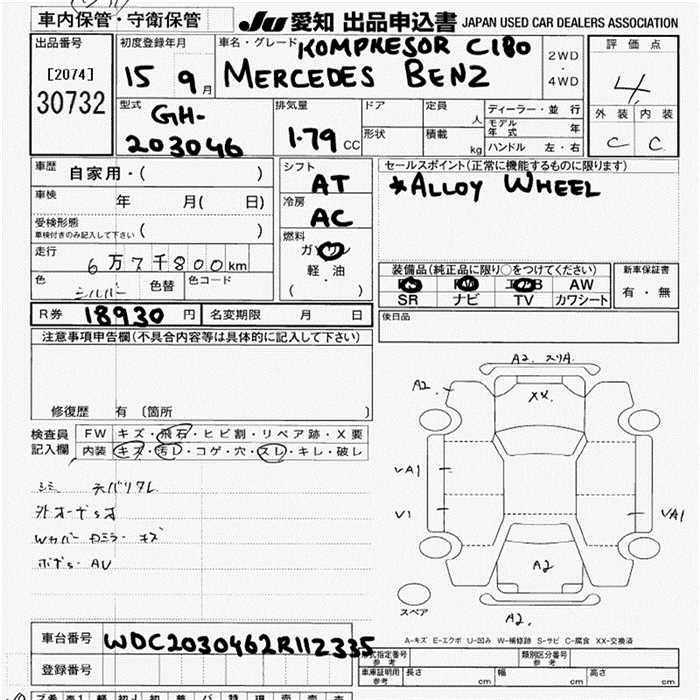 車内保管・守衛保管
JU 愛知 出品申込書 JAPAN USED CAR DEALERS ASSOCIATION
出品番号
[2074]
30732
初度登録年月
15 9 月
車名・グレード
KOMPRESOR C180
MERCEDES BENZ
2WD
・
4WD
評価点
4
外装 内装
C C
型式
GH-
203046
排気量
1.79 CC
ドア
定員
人
形状
積載
kg
ディーラー・並行
モデル年式 年
ハンドル 左・右
車歴
自家用・( )
車検
年 月( 日)
受検形態
車検付きのみ記入して下さい ( )
走行
6万7千800km
色
シルバー
色替
色コード
シフト
AT
冷房
AC
燃料
ガソリン
軽・油
( )
セールスポイント(正常に機能するものに限ります)
*ALLOY WHEEL
装備品(純正品に限り○をつけてください)
PS PW エアB AW
SR ナビ TV カワシート
新車保証書
有・無
後日品
R券 18930 円
名変期限 月 日
注意事項申告欄(不具合内容等は具体的に記入して下さい)
修復歴 有 〔箇所 〕
検査員
記入欄
FW キズ・飛石・ヒビ割・リペア跡・X要
内装 キズ・汚レ・コゲ・穴・スレ・キレ・破レ
A2. スリA.
A2.
XX.
VA1
V1
VA1
A2
A2.
スペア
A-キズ E-エクボ U-凹み W-補修跡 S-サビ C-腐食 XX-交換済
車台番号 WDC2030462R112335
登録番号
型式指定番号
参考
類別区分番号
参考
車庫証明用
参考
長さ cm 幅 cm 高さ cm